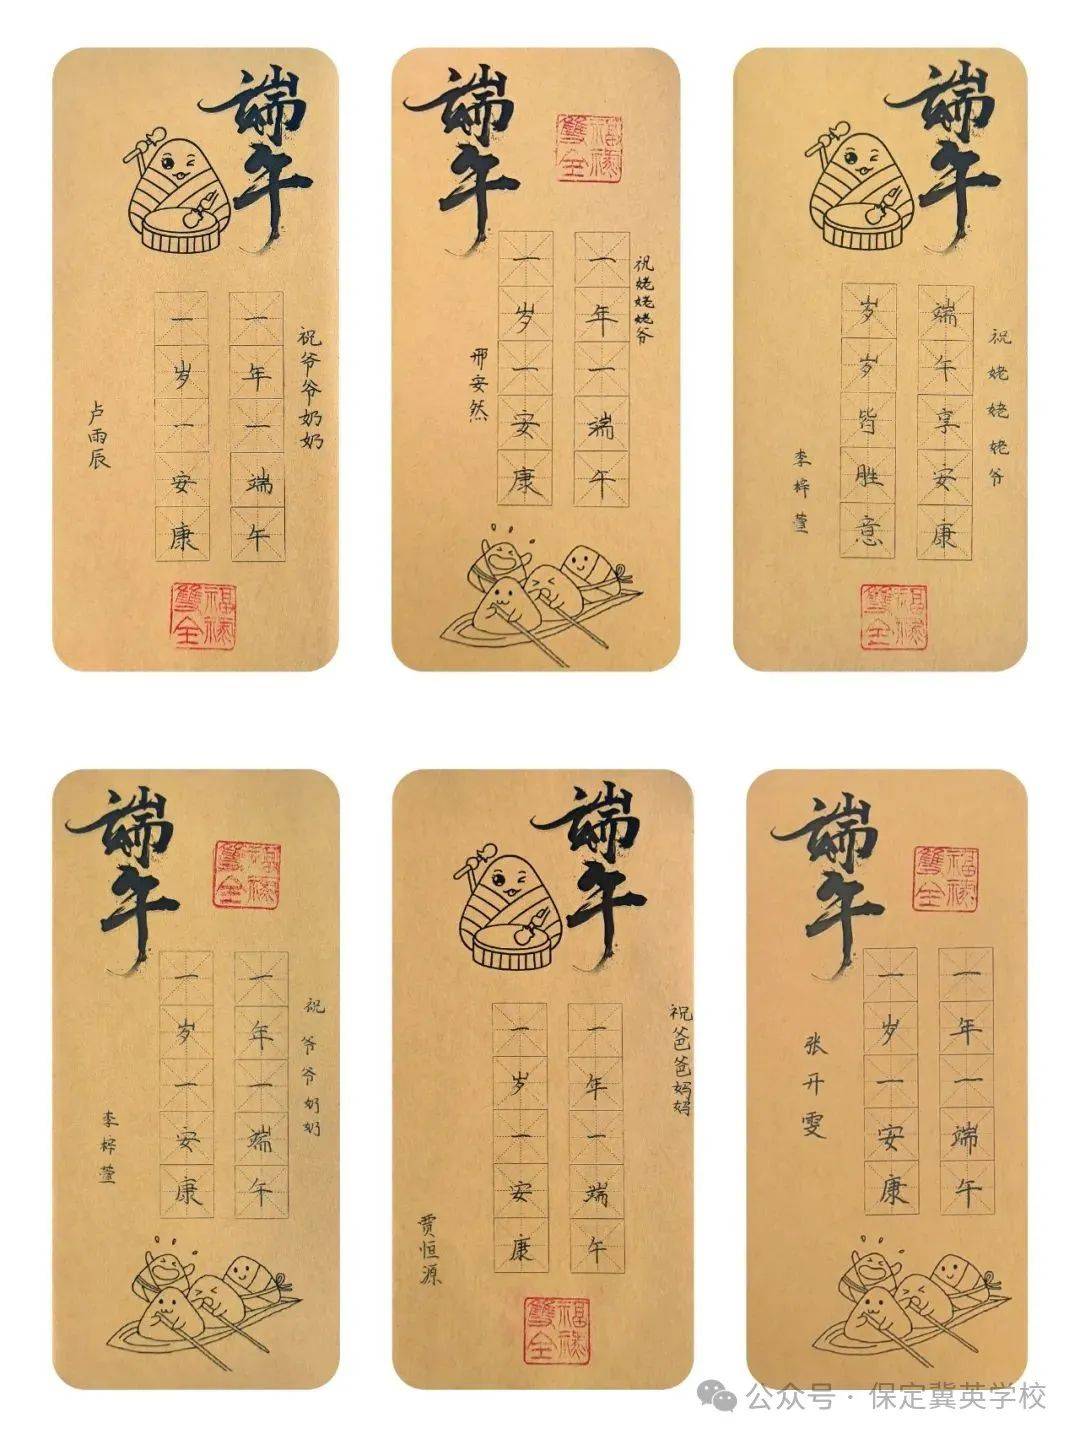 端午
祝爷爷奶奶
一年一端午
一岁一安康
卢雨辰
福禄
雙全
端午
福禄
雙全
祝姥姥姥爷
一年一端午
一岁一安康
邢安然
端午
祝姥姥姥爷
端午享安康
岁岁皆胜意
李梓萱
福禄
雙全
端午
福禄
雙全
祝爷爷奶奶
一年一端午
一岁一安康
李梓萱
端午
祝爸爸妈妈
一年一端午
一岁一安康
贾恒源
福禄
雙全
端午
福禄
雙全
一年一端午
一岁一安康
张开雯
公众号·保定冀英学校